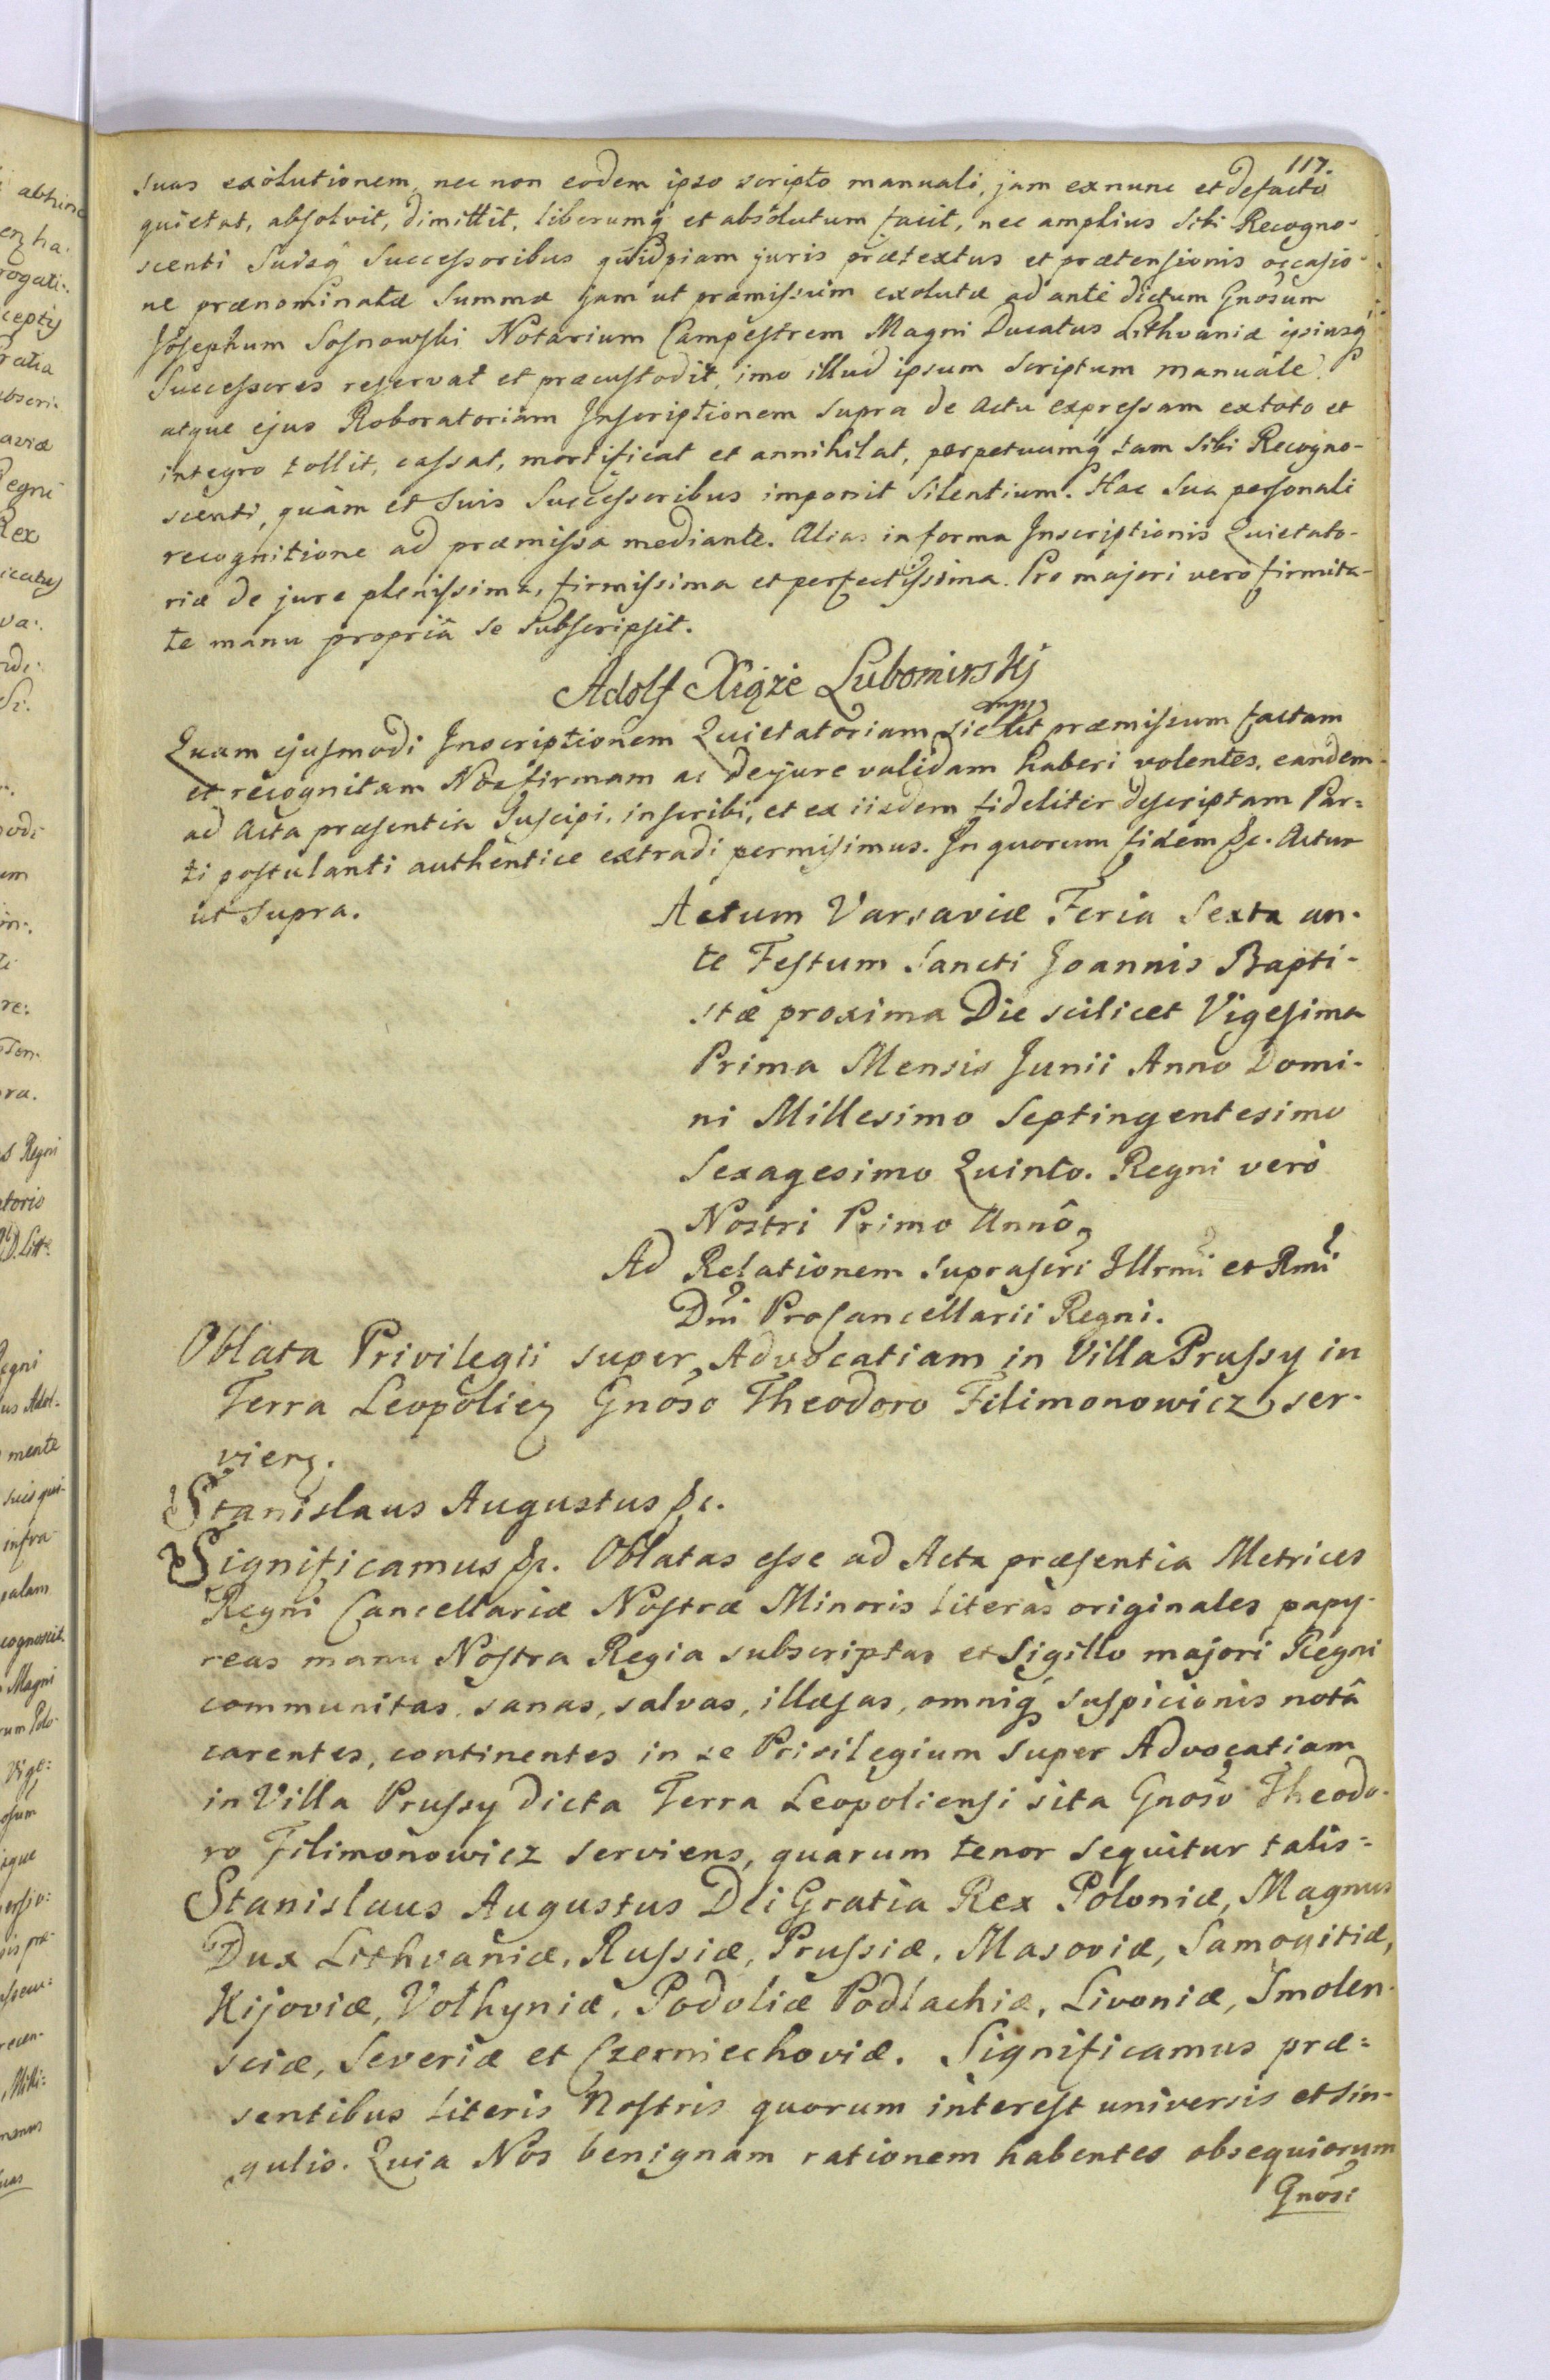 117.
suas exolutionem, nec non eodem ipso scripto manuali, jam exnunc et defacto
quietat, absolvit, dimittit, liberumq́ et absolutum facit, nec amplius sibi Recogno-
scenti Suisq́ Successoribus quidpiam juris prætextus et prætensionis occasio-
ne prænominatæ Summæ jam ut præmissum exolutæ ad ante dictum Gnosum
Josephum Sosnowski Notarium Campestrem Magni Ducatus Lithvaniæ ipsiusq́
Successores reservat et præcustodit, imo illud ipsum Scriptum manuale
atque ejus Roboratoriam Inscriptionem supra de Actu expressam extoto et
integro tollit, cassat, mortificat et annihilat, perpetuumq́ tam Sibi Recogno-
scenti, quàm et Suis Successoribus imponit Silentium. Hac Sua personali
recognitione ad præmissa mediante. Alias informa Inscriptionis Quietato-
riæ de jure plenissima, firmissima et perfectissima. Pro majori vero firmita-
te manu propriâ se Subscripsit.
Adolf Xiąże Lubomirskj
mpp
Quam ejusmodi Inscriptionem Quietatoriam sic ut præmissum factam
et recognitam Nos firmam ac dejure validam haberi volentes, eandem
ad Acta præsentia Suscipi, inscribi, et ex iisdem fideliter descriptam Par=
ti postulanti authentice extradi permisimus. In quorum fidem &c. Actum
ut supra.
Actum Varsaviæ Feria Sexta an-
te Festum Sancti Joannis Bapti-
stæ proxima Die scilicet Vigesima
Prima Mensis Junii Anno Domi-
ni Millesimo Septingentesimo
Sexagesimo Quinto. Regni verò
Nostri Primo Annô,
Ad Relationem suprascri Illrmi et Rmi
Dni ProCancellarii Regni.
Oblata Privilegii super Advocatiam in Villa Prussy in
Terra Leopolien Gnoso Theodoro Filimonowicz ser-
vien.
Stanislaus Augustus &c.
Significamus &c. Oblatas esse ad Acta præsentia Metrices
Regni Cancellariæ Nostræ Minoris Literas originales papy-
reas manu Nostra Regia subscriptas et Sigillo majori Regni
communitas, sanas, salvas, illæsas, omniq́ suspicionis notâ
carentes, continentes in se Privilegium super Advocatiam
in Villa Prussy dicta Terra Leopoliensi sita Gnoso Theodo-
ro Filimonowicz serviens, quarum tenor sequitur talis=
Stanislaus Augustus Dei Gratia Rex Poloniæ, Magnus
Dux Lithvaniæ, Russiæ, Prussiæ, Masoviæ, Samogitiæ,
Kijoviæ, Volhyniæ, Podoliæ Podlachiæ, Livoniæ, Smolen-
sciæ, Severiæ et Czerniechoviæ. Significamus præ=
sentibus Literis Nostris quorum interest universis et sin-
gulis. Quia Nos benignam rationem habentes obsequiorum
Gnosi